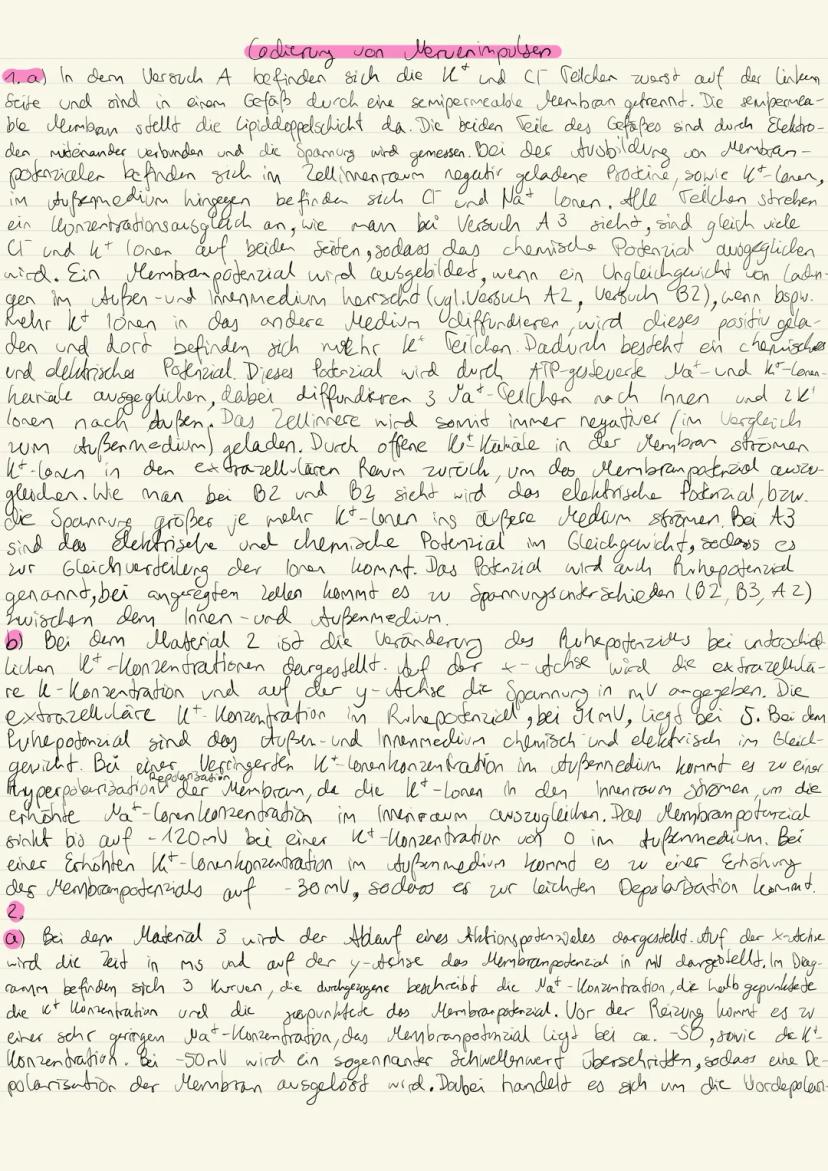 Codierung von Nervenimpulsen
1. a) In dem Versuch A befinden sich die K⁺ und Cl⁻ Teilchen zuerst auf der linken
Seite und sind in einem Gefäß durch eine semipermeable Membran getrennt. Die semipermea-
ble Membran stellt die Lipiddoppelschicht da. Die beiden Teile des Gefäßes sind durch Elektro-
den miteinander verbunden und die Spannung wird gemessen. Bei der Ausbildung von Membran-
potenzialen befinden sich im Zellinnenraum negativ geladene Proteine, sowie K⁺-Ionen,
im Außenmedium hingegen befinden sich Cl⁻ und Na⁺ Ionen. Alle Teilchen streben
ein Konzentrationsausgleich an, wie man bei Versuch A3 sieht, sind gleich viele
Cl⁻ und K⁺ Ionen auf beiden Seiten, sodass das chemische Potenzial ausgeglichen
wird. Ein Membranpotenzial wird ausgebildet, wenn ein Ungleichgewicht von Ladun-
gen im Außen- und Innenmedium herrscht (vgl. Versuch A2, Versuch B2), wenn bspw.
mehr K⁺ Ionen in das andere Medium diffundieren, wird dieses positiv gela-
den und dort befinden sich mehr K⁺ Teilchen. Dadurch besteht ein chemisches
und elektrisches Potenzial. Dieses Potenzial wird durch ATP-gesteuerte Na⁺- und K⁺-Ionen-
kanäle ausgeglichen, dabei diffundieren 3 Na⁺-Teilchen nach Innen und 2K⁺
Ionen nach Außen. Das Zellinnere wird somit immer negativer (im Vergleich
zum Außenmedium) geladen. Durch offene K⁺-Kanäle in der Membran strömen
K⁺-Ionen in den extrazellulären Raum zurück, um das Membranpotenzial auszu-
gleichen. Wie man bei B2 und B3 sieht wird das elektrische Potenzial, bzw.
die Spannung größer je mehr K⁺-Ionen ins äußere Medium strömen. Bei A3
sind das elektrische und chemische Potenzial im Gleichgewicht, sodass es
zur Gleichverteilung der Ionen kommt. Das Potenzial wird auch Ruhepotenzial
genannt, bei angeregten Zellen kommt es zu Spannungsunterschieden (B2, B3, A2)
zwischen dem Innen- und Außenmedium.
b) Bei dem Material 2 ist die Veränderung des Ruhepotenzials bei unterschied-
lichen K⁺-Konzentrationen dargestellt. Auf der x-Achse wird die extrazellulä-
re K-Konzentration und auf der y-Achse die Spannung in mV angegeben. Die
extrazelluläre K⁺-Konzentration im Ruhepotenzial, bei 91mV, liegt bei 5. Bei dem
Ruhepotenzial sind das Außen- und Innenmedium chemisch und elektrisch im Gleich-
gewicht. Bei einer Verringerten K⁺-Ionenkonzentration im Außenmedium kommt es zu einer
Repolarisation
Hyperpolarisation der Membran, da die K⁺-Ionen in den Innenraum strömen, um die
erhöhte Na⁺-Ionenkonzentration im Innenraum auszugleichen. Das Membranpotenzial
sinkt bis auf -120mV bei einer K⁺-Konzentration von 0 im Außenmedium. Bei
einer Erhöhten K⁺-Ionenkonzentration im Außenmedium kommt es zu einer Erhöhung
des Membranpotenzials auf -30mV, sodass es zur leichten Depolarisation kommt.
2.
a) Bei dem Material 3 wird der Ablauf eines Aktionspotenziales dargestellt. Auf der x-Achse
wird die Zeit in ms und auf der y-Achse das Membranpotenzial in mV dargestellt. Im Diag-
ramm befinden sich 3 Kurven, die durchgezogene beschreibt die Na⁺-Konzentration, die halb gepunktete
die K⁺ Konzentration und die gepunktete das Membranpotenzial. Vor der Reizung kommt es zu
einer sehr geringen Na⁺-Konzentration, das Membranpotenzial liegt bei ca. -50, sowie die K⁺-
Konzentration. Bei -50mV wird ein sogennanter Schwellenwert überschritten, sodass eine De-
polarisation der Membran ausgelöst wird. Dabei handelt es sich um die Vordepolari-